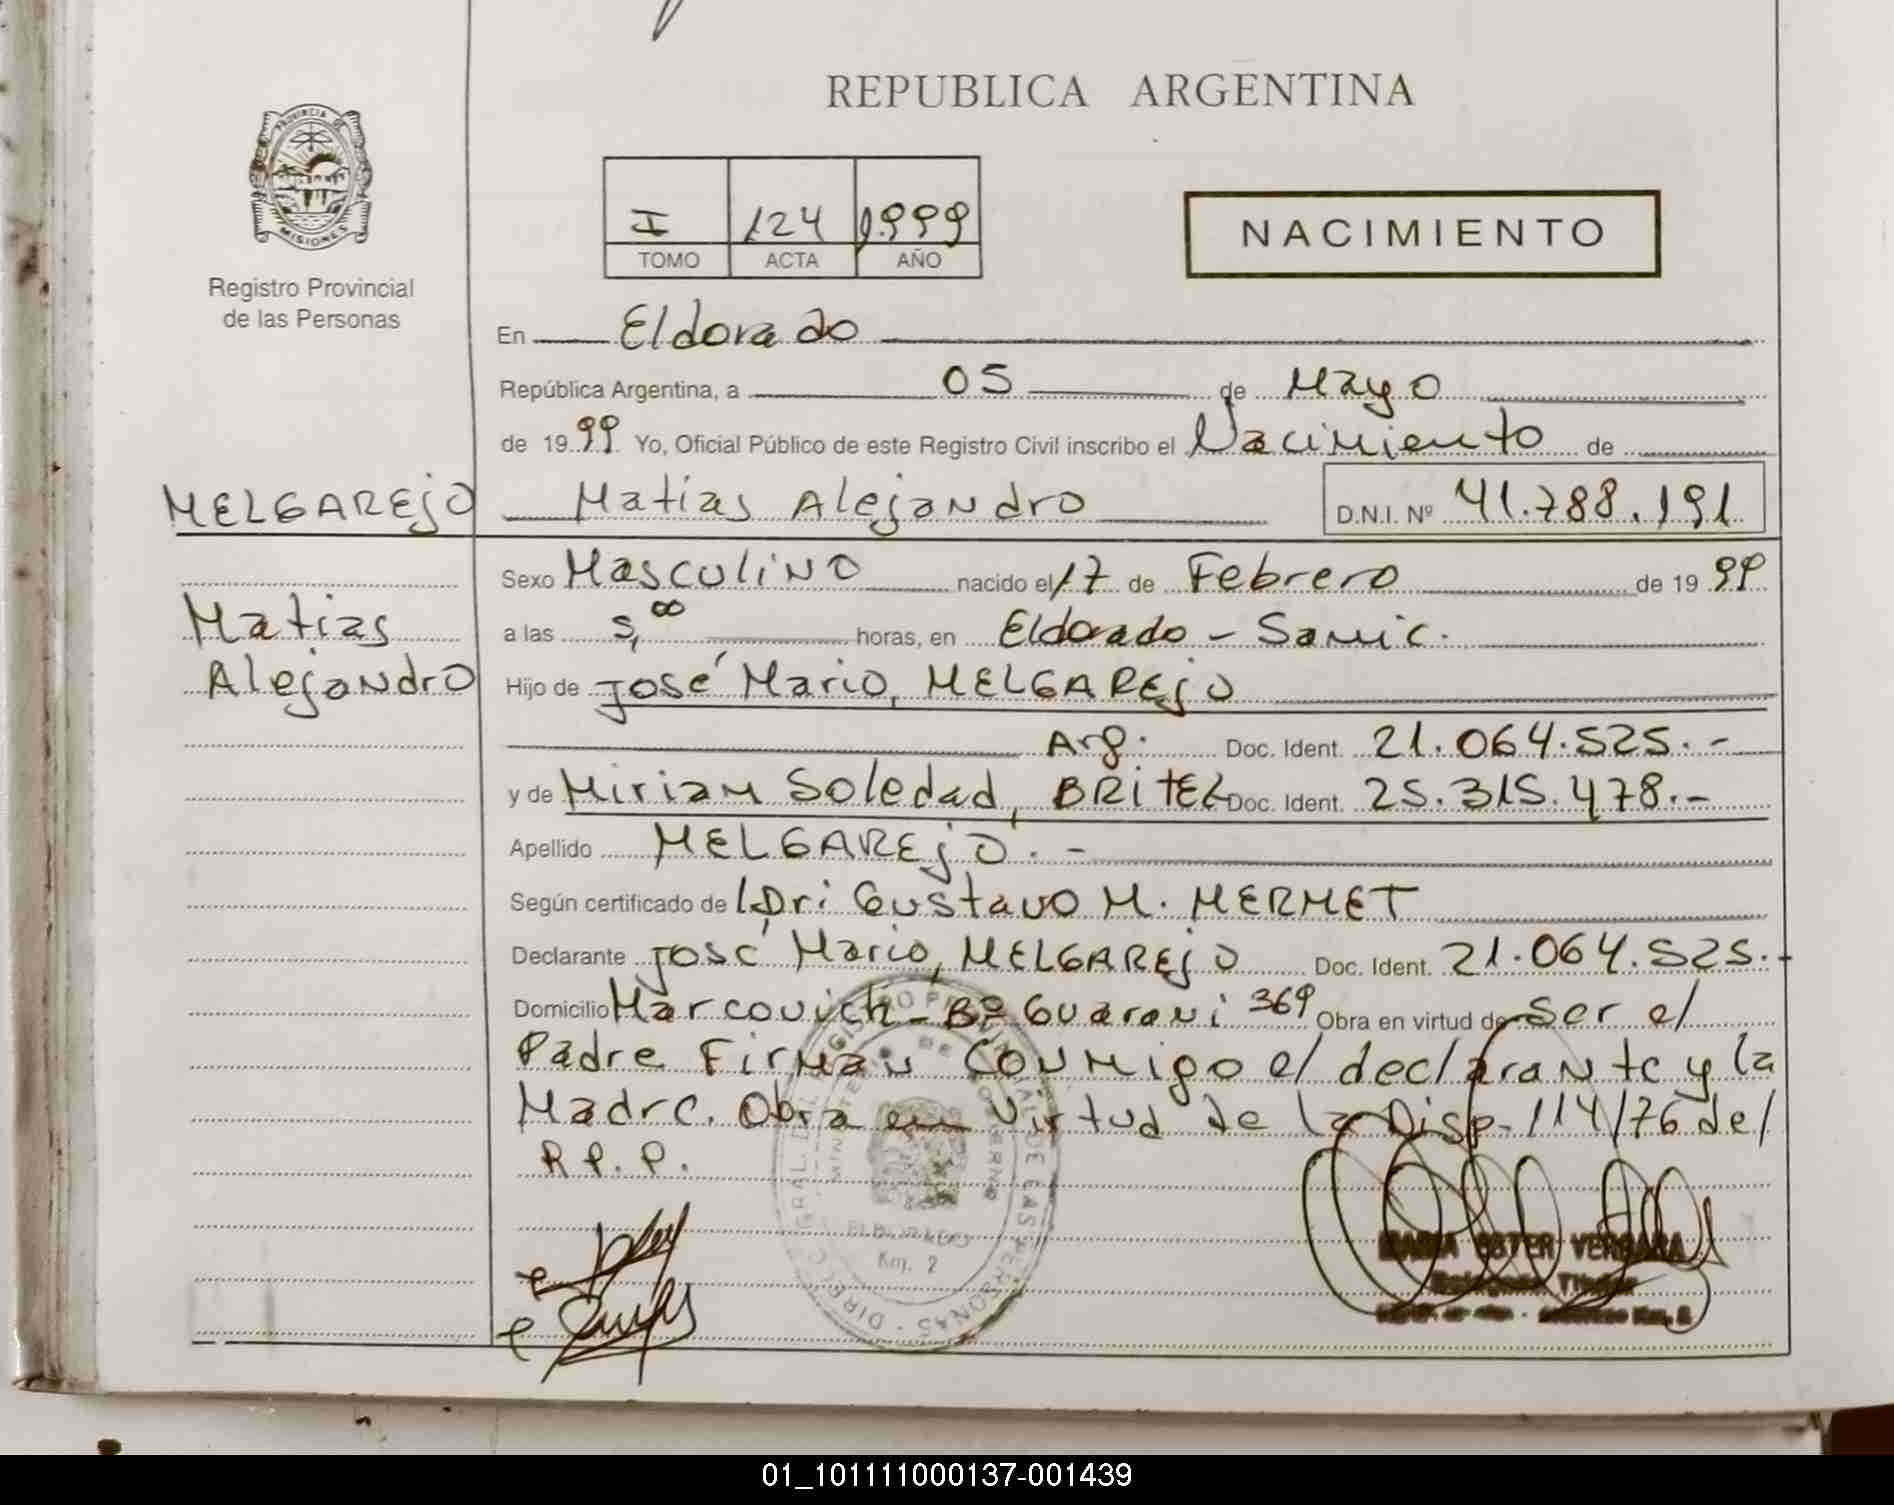 REPUBLICA ARGENTINA
PROVINCIA DE
MISIONES
Registro Provincial
de las Personas
I 124 1.999
TOMO ACTA AÑO
NACIMIENTO
En Eldorado
República Argentina, a 05 de Mayo
de 1999 Yo, Oficial Público de este Registro Civil inscribo el Nacimiento de
MELGAREJO Matias Alejandro D.N.I. Nº 41.788.191
Sexo Masculino nacido el 17 de Febrero de 1999
Matias
Alejandro
a las 5,00 horas, en Eldorado - Samic.
Hijo de José Mario, MELGAREJO
Arg. Doc. Ident. 21.064.525.-
y de Miriam Soledad, BRITEZ Doc. Ident. 25.315.478.-
Apellido MELGAREJO.-
Según certificado de Dr: Gustavo M. MERMET
Declarante José Mario, MELGAREJO Doc. Ident. 21.064.525.-
Domicilio Marcovich - Bº Guarani 369 Obra en virtud de ser el
Padre Firman Conmigo el declarante y la
Madre. Obra en virtud de la Disp. 114/76 del
R P. P.
ELDORADO
Km. 2
MARIA ESTER VERGARA
01_101111000137-001439